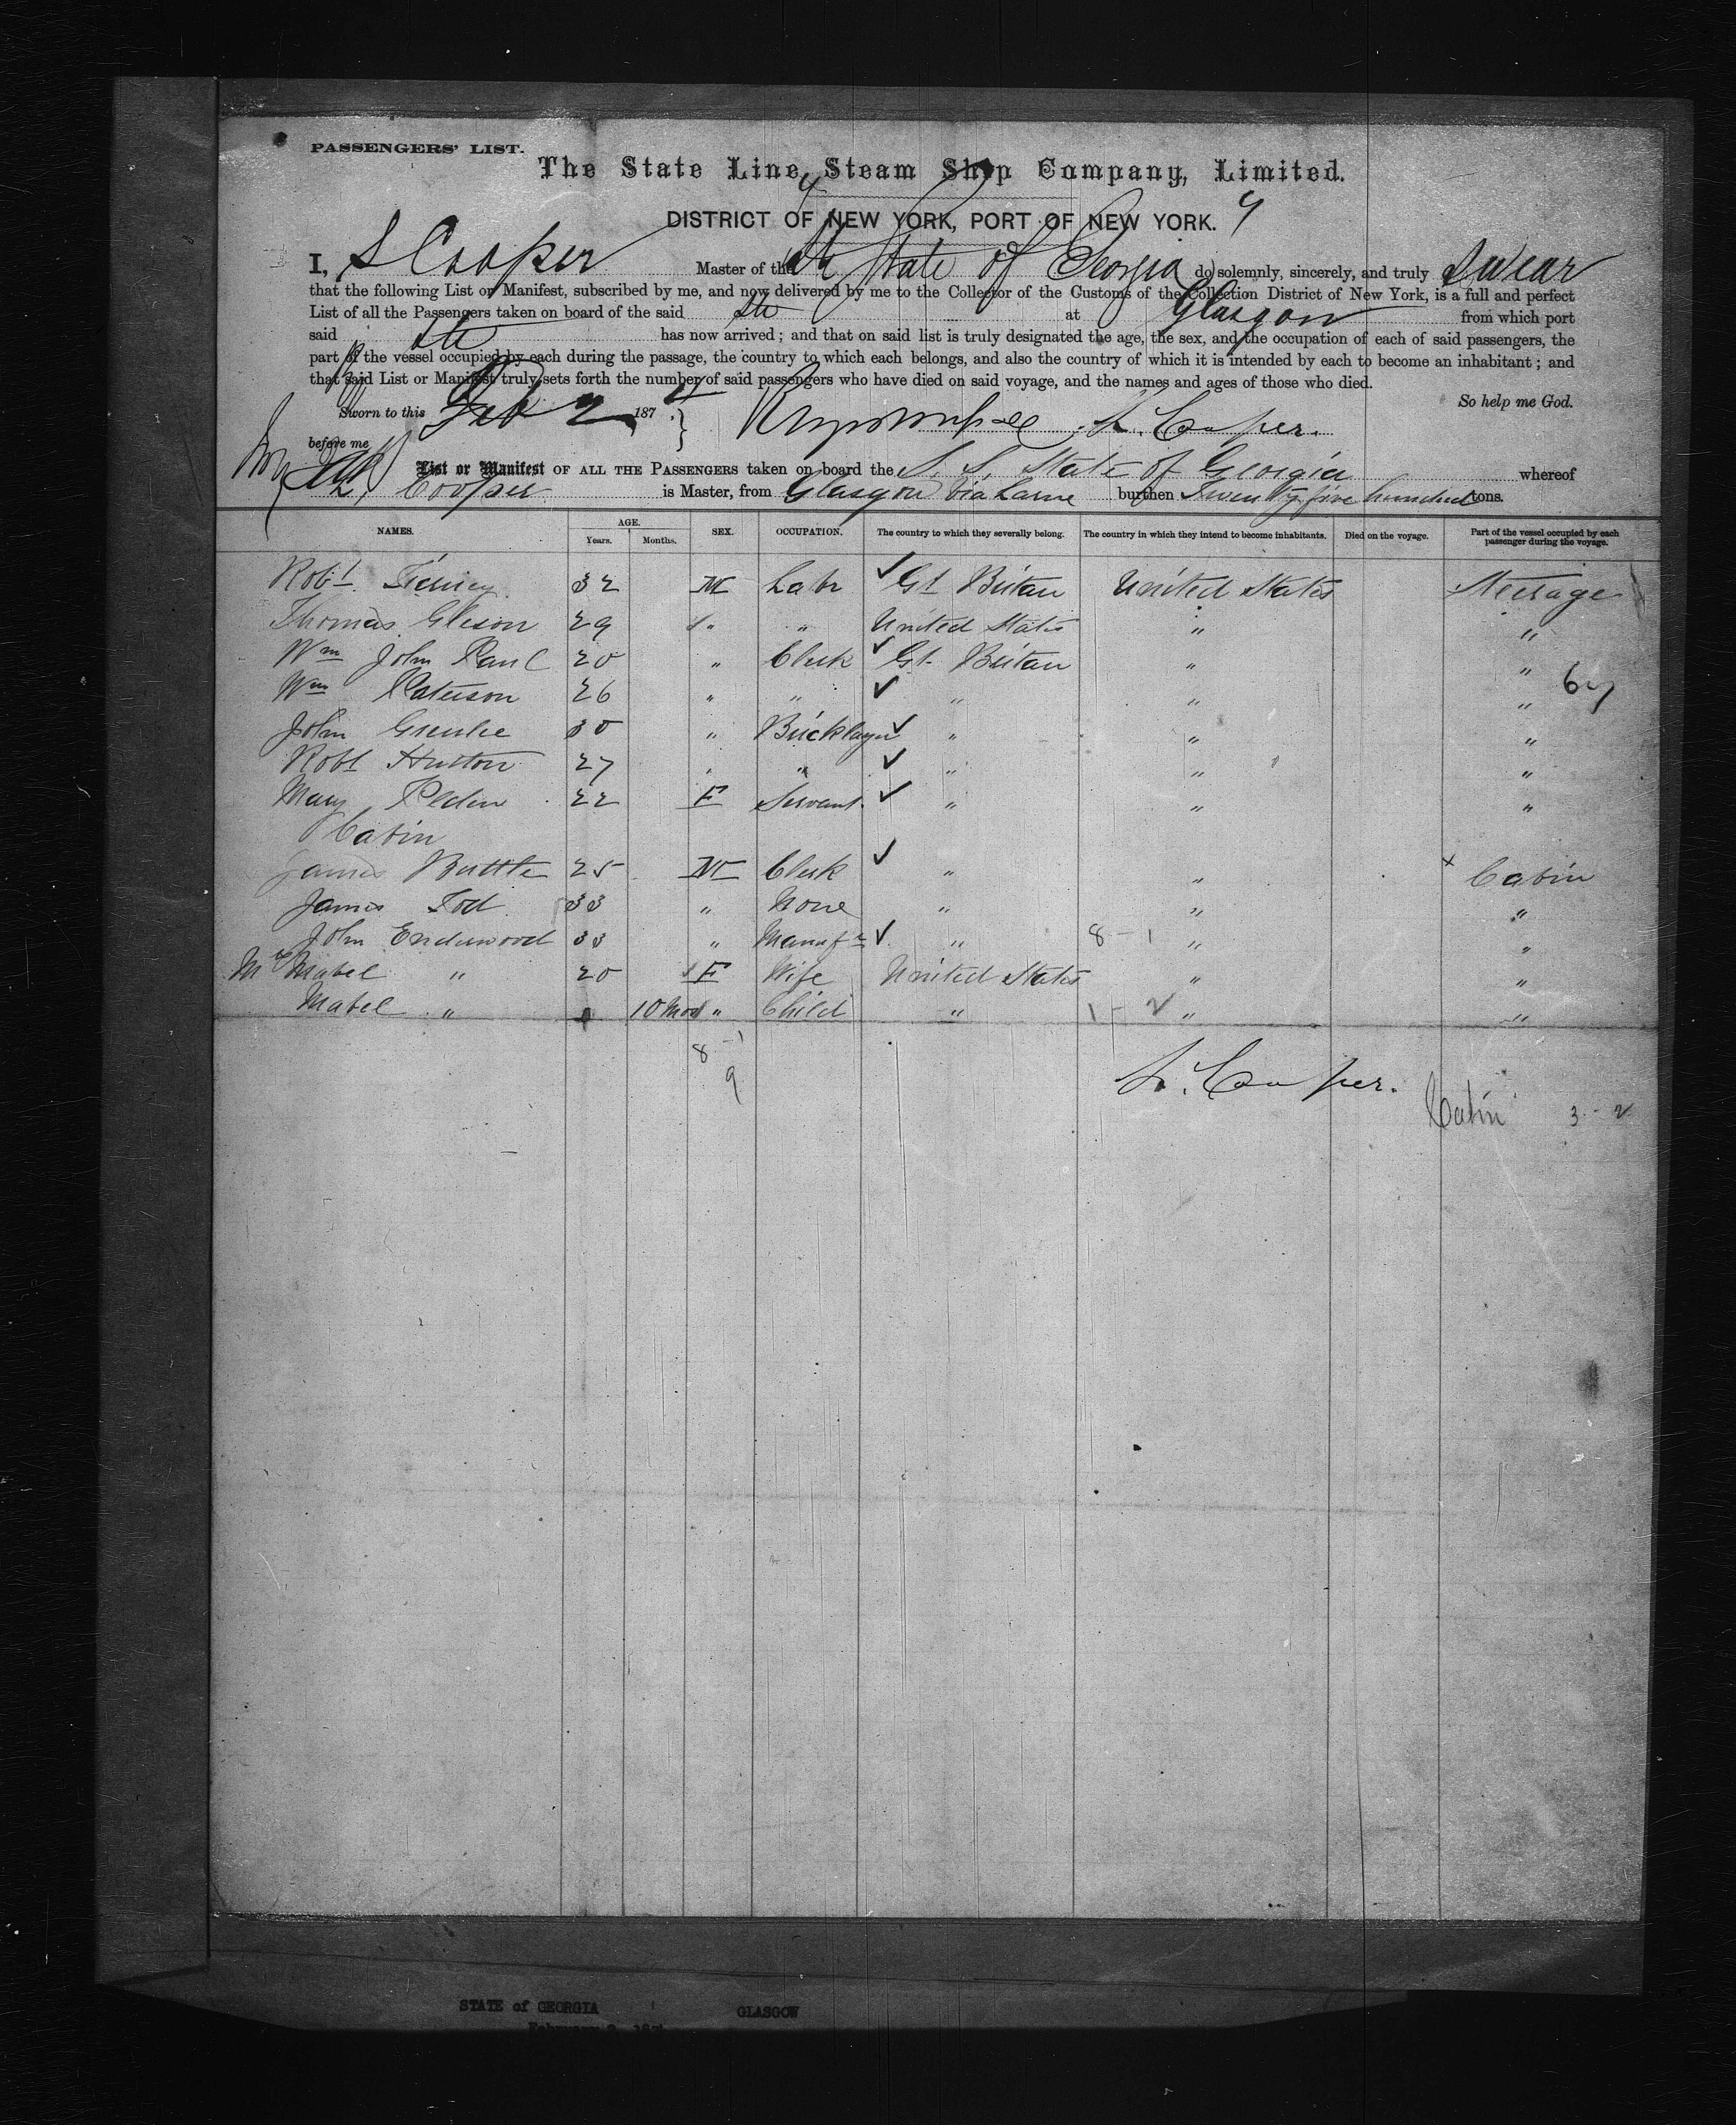 PASSENGERS' LIST.
The State Line Steam Ship Company, Limited.
DISTRICT OF NEW YORK, PORT OF NEW YORK.
I, S Cooper Master of the Str State of Georgia do solemnly, sincerely, and truly Swear
that the following List or Manifest, subscribed by me, and now delivered by me to the Collector of the Customs of the Collection District of New York, is a full and perfect
List of all the Passengers taken on board of the said Str at Glasgow from which port
said Str has now arrived; and that on said list is truly designated the age, the sex, and the occupation of each of said passengers, the
part of the vessel occupied by each during the passage, the country to which each belongs, and also the country of which it is intended by each to become an inhabitant; and
that said List or Manifest truly sets forth the number of said passengers who have died on said voyage, and the names and ages of those who died.
So help me God.
Sworn to this Feb 2 187 S. Cooper.
before me
List or Manifest OF ALL THE PASSENGERS taken on board the S. S. State of Georgia whereof
Cooper is Master, from Glasgow via Larne burthen Twenty five hundred tons.
NAMES. AGE. Years. Months. SEX. OCCUPATION. The country to which they severally belong. The country in which they intend to become inhabitants. Died on the voyage. Part of the vessel occupied by each passenger during the voyage.
Robt 32 M Labr ✓ Gt Britan United States Steerage
Thomas Gleson 29 " " United States " "
Wm John Paul 20 " Clerk ✓ Gt. Britan " "
Wm Paterson 26 " " ✓ " " " 67
John Greenlee 30 " Bricklayer ✓ " " "
Robt Hutton 27 " " ✓ " " "
Mary Peden 22 F Servant ✓ " " "
Cabin
James Buttle 25 M Clerk ✓ " " x Cabin
James Tod 33 " None " " "
John Enderwood 33 " Manufr ✓ " 8 - 1 " "
Mrs Mabel " 20 F Wife United States " "
Mabel " 10 Mos " Child " 1 - 2 " "
8 - 1
9
S. Cooper.
Cabin 3 - 2
STATE of GEORGIA GLASGOW